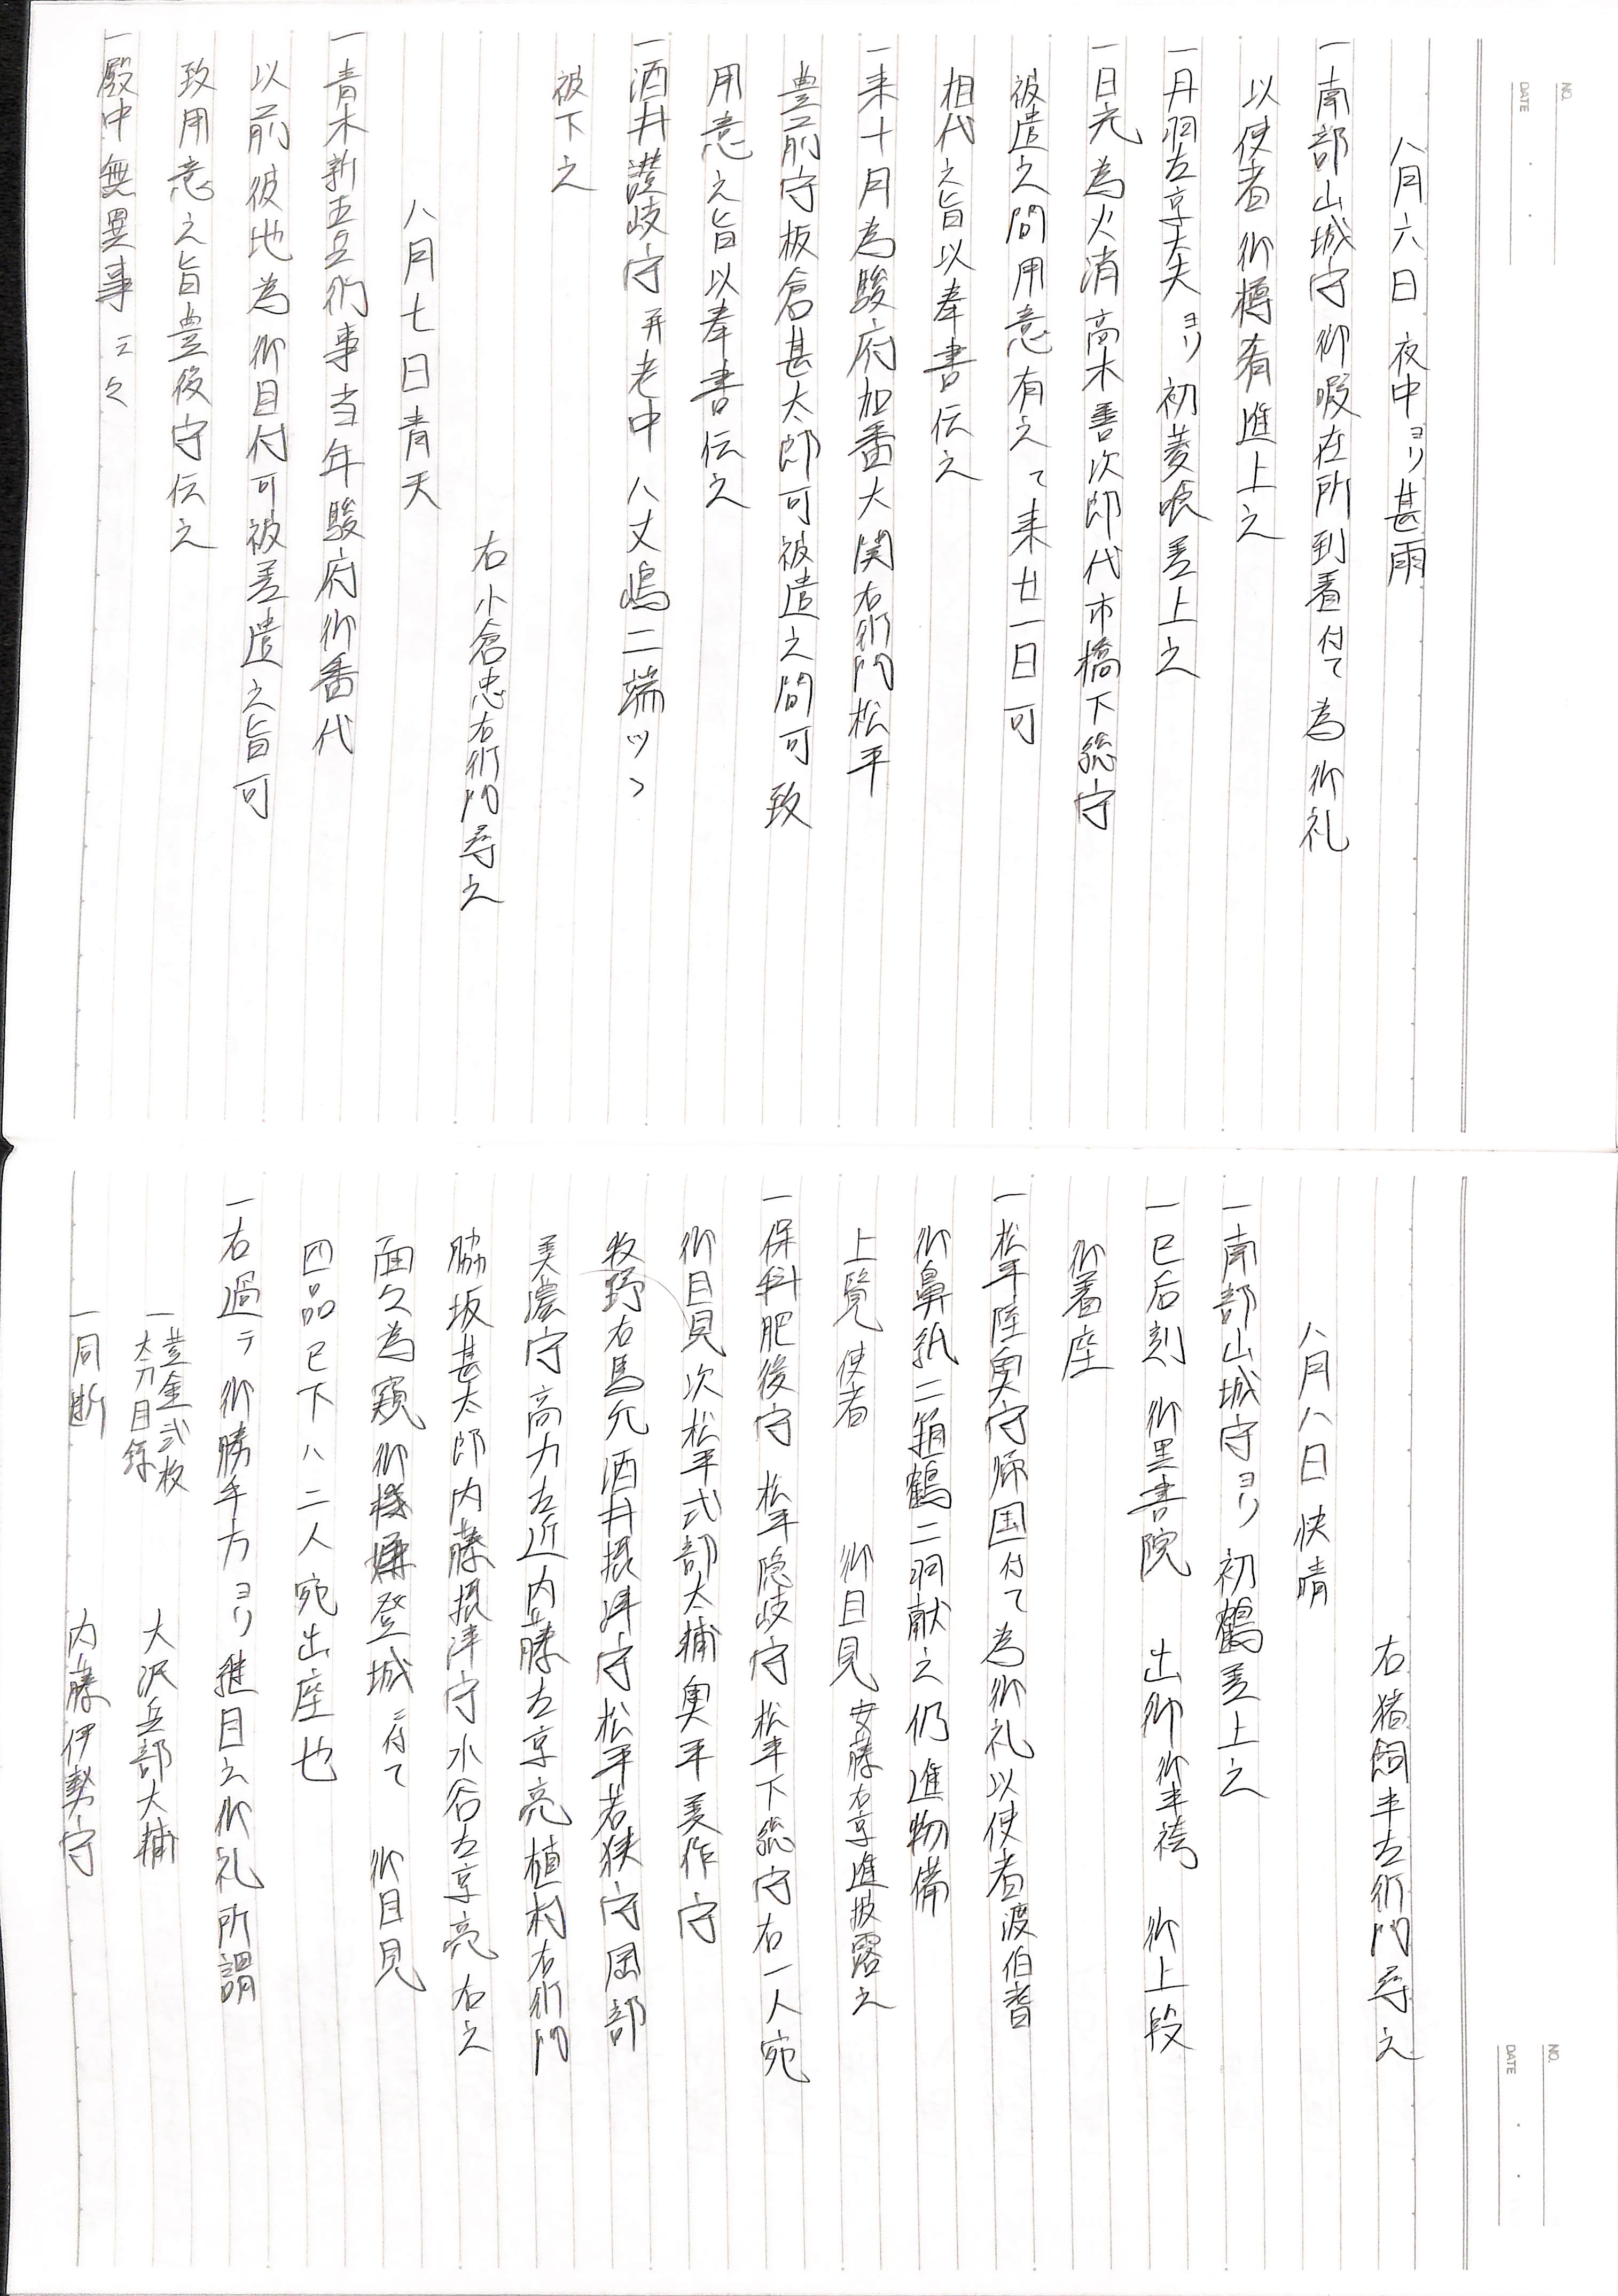 NO.
DATE
八月六日 夜中ヨリ甚雨
一南部山城守御暇在所到着付て為御礼
以使者御樽肴進上之
一丹羽左京大夫ヨリ初菱喰差上之
一日光為火消高木善次郎代市橋下総守
被遣之間用意有之て来廿一日可
相代之旨以奉書伝之
一来十月為駿府加番大関右衛門松平
豊前守板倉甚太郎可被遣之間可致
用意之旨以奉書伝之
一酒井讃岐守并老中八丈嶋二端ツヽ
被下之
右小倉忠右衛門尋之
八月七日青天
一青木新五兵衛事当年駿府御番代
以前彼地為御目付可被差遣之旨可
致用意之旨豊後守伝之
一殿中無異事云々
NO.
DATE
右猪飼半左衛門尋之
八月八日快晴
一南部山城守ヨリ初鶴差上之
一巳后刻 御黒書院 出御御半袴 御上段
御着座
一松平陸奥守帰国付て為御礼以使者渡伯耆
御鼻紙二箱鶴二羽献之仍進物備
上覧使者 御目見安藤右京進披露之
一保科肥後守 松平隠岐守 松平下総守右一人宛
御目見次松平式部太輔奥平美作守
牧野右馬允酒井摂津守松平若狭守岡部
美濃守高力左近内藤左京亮植村右衛門
脇坂甚太郎内藤摂津守水谷左京亮右之
面々為窺御機嫌登城ニ付て 御目見
四品已下ハ二人宛出座也
一右過テ御勝手方ヨリ継目之御礼所謂
一黄金弐枚 太刀目録 大沢兵部大輔
一同断 内藤伊勢守